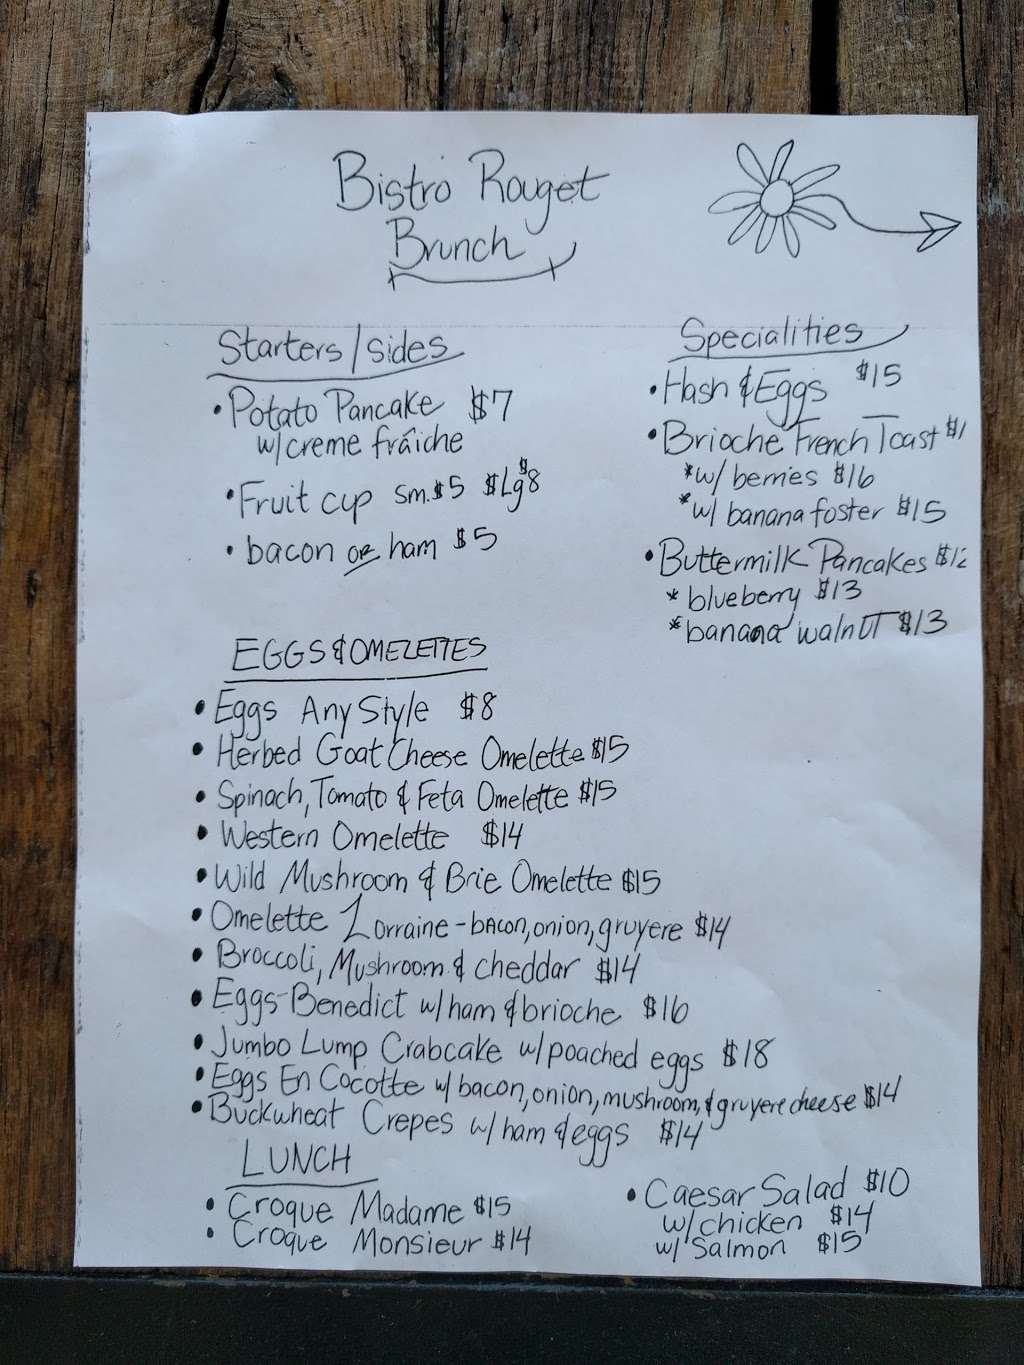 Bistro Rouget
Brunch
Starters/sides
• Potato Pancake $7
w/creme fraîche
• Fruit cup sm.$5 $Lg$8
• bacon or ham $5
Specialities
• Hash & Eggs $15
• Brioche French Toast
*w/ berries $16
*w/ banana foster $15
• Buttermilk Pancakes $12
* blueberry $13
*banana walnut $13
EGGS & OMELETTES
• Eggs Any Style $8
• Herbed Goat Cheese Omelette $15
• Spinach, Tomato & Feta Omelette $15
• Western Omelette $14
• Wild Mushroom & Brie Omelette $15
• Omelette Lorraine - bacon, onion, gruyere $14
• Broccoli, Mushroom & cheddar $14
• Eggs-Benedict w/ham & brioche $16
• Jumbo Lump Crabcake w/poached eggs $18
• Eggs En Cocotte w/ bacon, onion, mushroom, & gruyere cheese $14
• Buckwheat Crepes w/ham & eggs $14
LUNCH
• Croque Madame $15
• Croque Monsieur $14
• Caesar Salad $10
w/chicken $14
w/Salmon $15